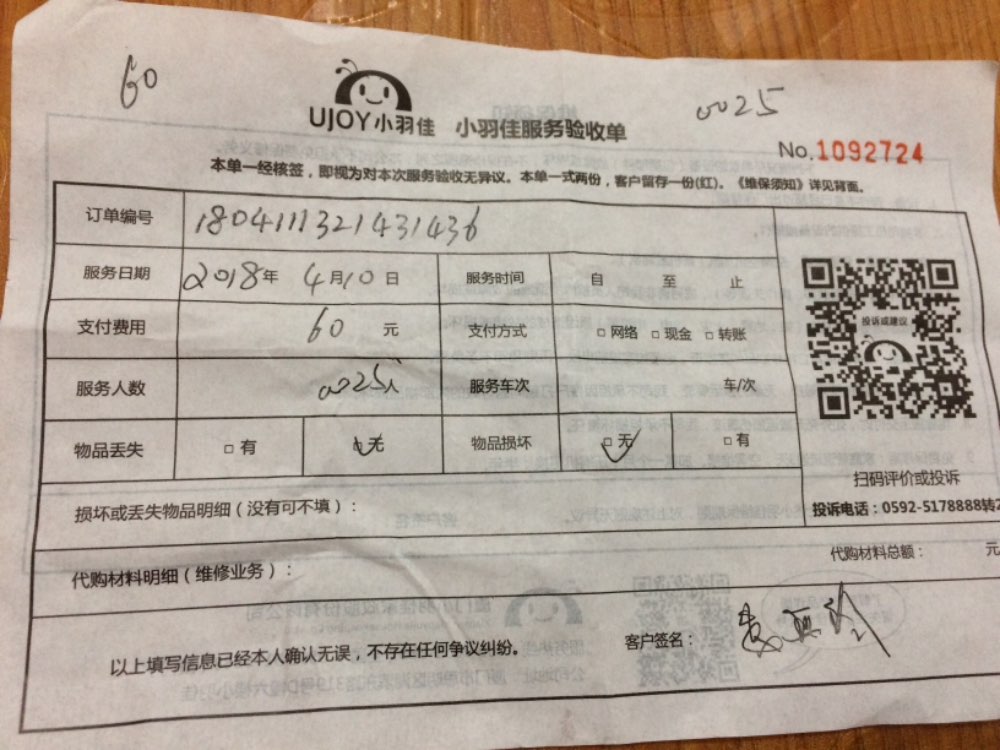 60
0025
UJOY小羽佳 小羽佳服务验收单
No.1092724
本单一经核签，即视为对本次服务验收无异议。本单一式两份，客户留存一份(红)。《维保须知》详见背面。
订单编号 1804111321431436
服务日期 2018年 4月10日 服务时间 自 至 止
支付费用 60 元 支付方式 □网络 □现金 □转账
投诉或建议
服务人数 0025人 服务车次 车/次
物品丢失 □有 □无 物品损坏 □无 □有
扫码评价或投诉
损坏或丢失物品明细（没有可不填）：
投诉电话：0592-5178888转2
代购材料明细（维修业务）：
代购材料总额： 元
以上填写信息已经本人确认无误，不存在任何争议纠纷。
客户签名：